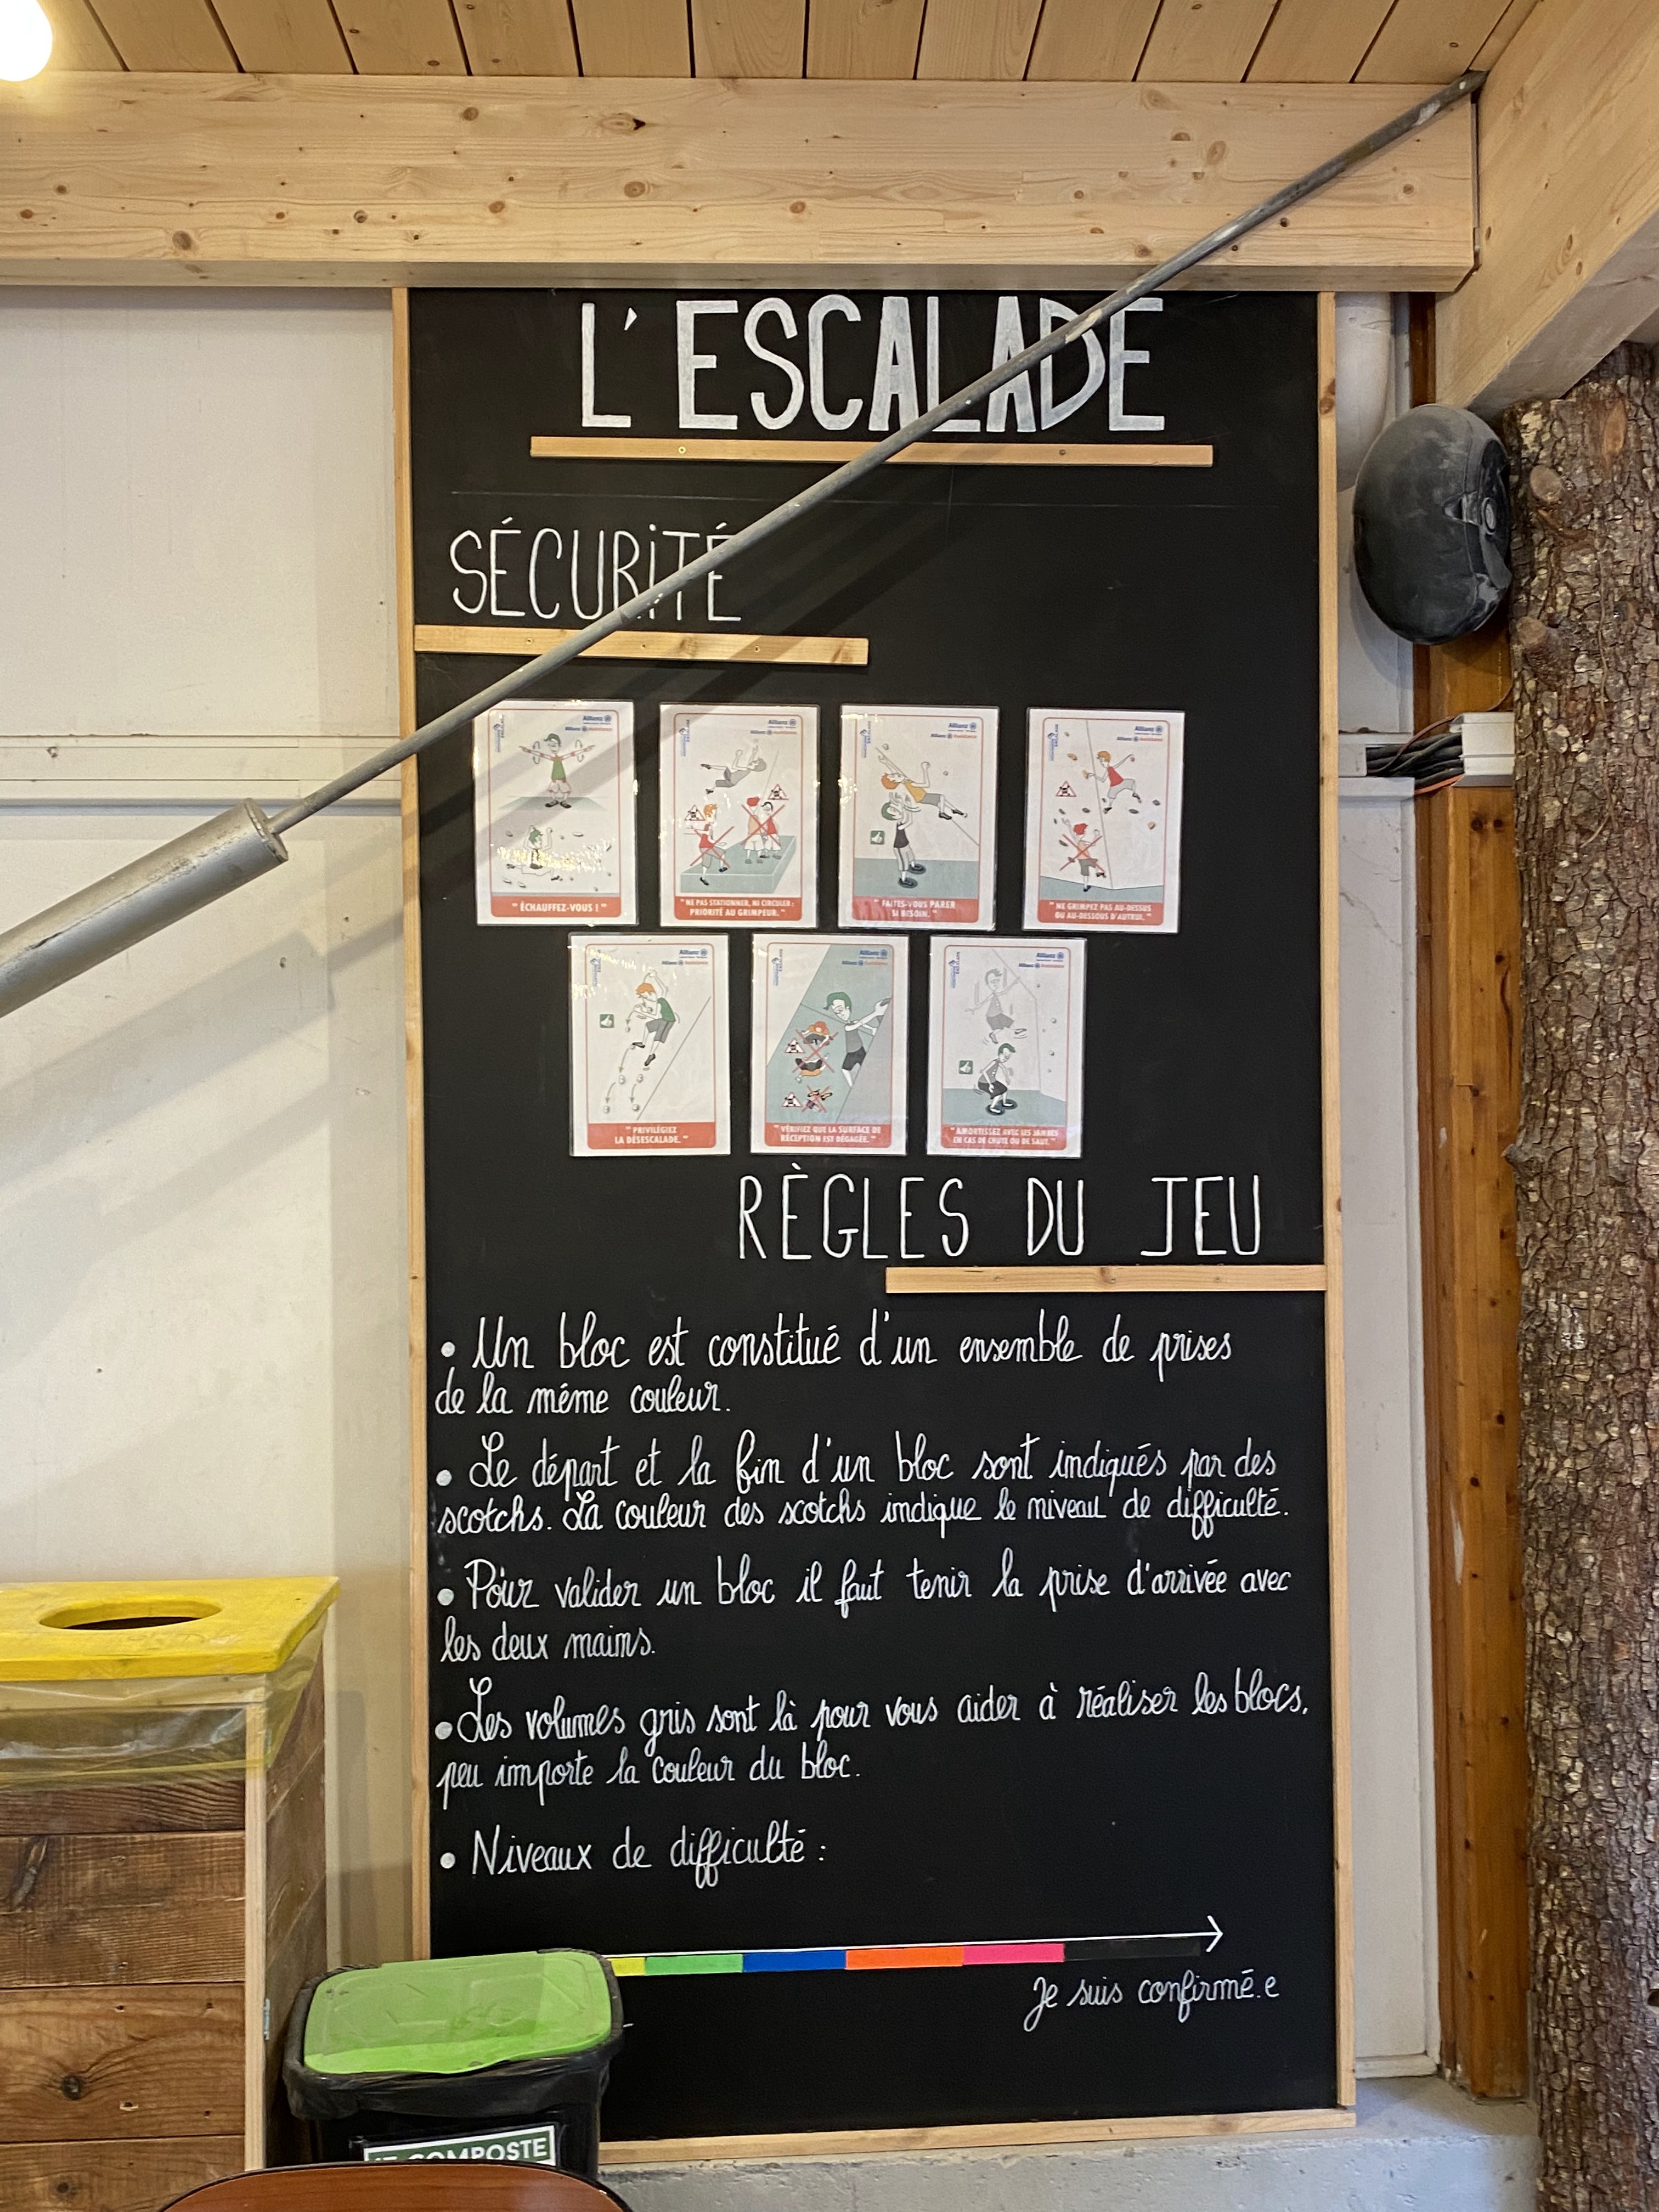 L'ESCALADE
SÉCURiTÉ
Allianz
Allianz
Allianz
Allianz
" ÉCHAUFFEZ-VOUS ! "
" NE PAS STATIONNER, NI CIRCULER :
PRIORITÉ AU GRIMPEUR. "
" FAITES-VOUS PARER
SI BESOIN. "
" NE GRIMPEZ PAS AU-DESSUS
OU AU-DESSOUS D'AUTRUI. "
Allianz
Allianz
Allianz
" PRIVILÉGIEZ
LA DÉSESCALADE. "
" VÉRIFIEZ QUE LA SURFACE DE
RÉCEPTION EST DÉGAGÉE. "
" AMORTISSEZ AVEC LES JAMBES
EN CAS DE CHUTE OU DE SAUT. "
RÈGLES DU JEU
• Un bloc est constitué d'un ensemble de prises
de la même couleur.
• Le départ et la fin d'un bloc sont indiqués par des
scotchs. La couleur des scotchs indique le niveau de difficulté.
• Pour valider un bloc il faut tenir la prise d'arrivée avec
les deux mains.
• Les volumes gris sont là pour vous aider à réaliser les blocs,
peu importe la couleur du bloc.
• Niveaux de difficulté :
Je suis confirmé.e
COMPOSTE